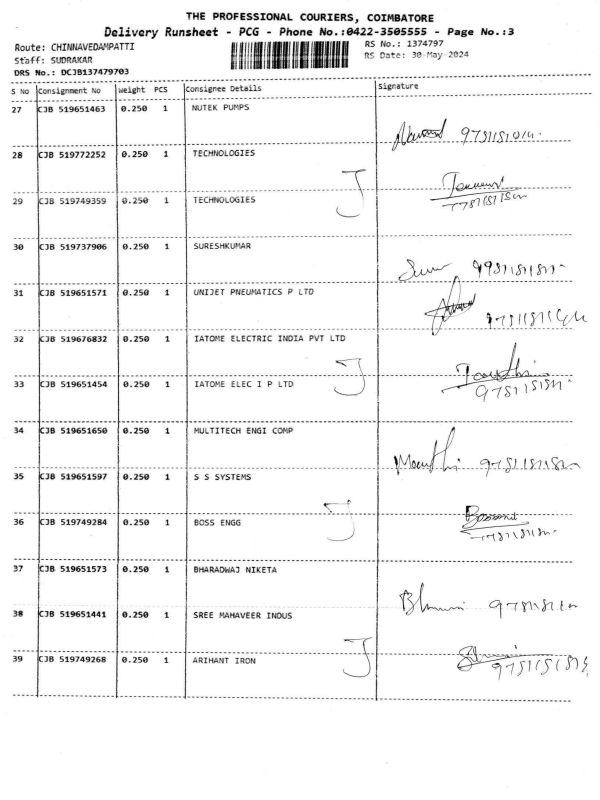 THE PROFESSIONAL COURIERS, COIMBATORE
Delivery Runsheet - PCG - Phone No.:0422-3505555 - Page No.:3
Route: CHINNAVEDAMPATTI
RS No.: 1374797
Staff: SUDRAKAR
RS Date: 30-May-2024
DRS No.: DCJB137479703
S No Consignment No Weight PCS Consignee Details Signature
27 CJB 519651463 0.250 1 NUTEK PUMPS
28 CJB 519772252 0.250 1 TECHNOLOGIES
29 CJB 519749359 0.250 1 TECHNOLOGIES
30 CJB 519737906 0.250 1 SURESHKUMAR
31 CJB 519651571 0.250 1 UNIJET PNEUMATICS P LTD
32 CJB 519676832 0.250 1 IATOME ELECTRIC INDIA PVT LTD
33 CJB 519651454 0.250 1 IATOME ELEC I P LTD
34 CJB 519651650 0.250 1 MULTITECH ENGI COMP
35 CJB 519651597 0.250 1 S S SYSTEMS
36 CJB 519749284 0.250 1 BOSS ENGG
37 CJB 519651573 0.250 1 BHARADWAJ NIKETA
38 CJB 519651441 0.250 1 SREE MAHAVEER INDUS
39 CJB 519749268 0.250 1 ARIHANT IRON